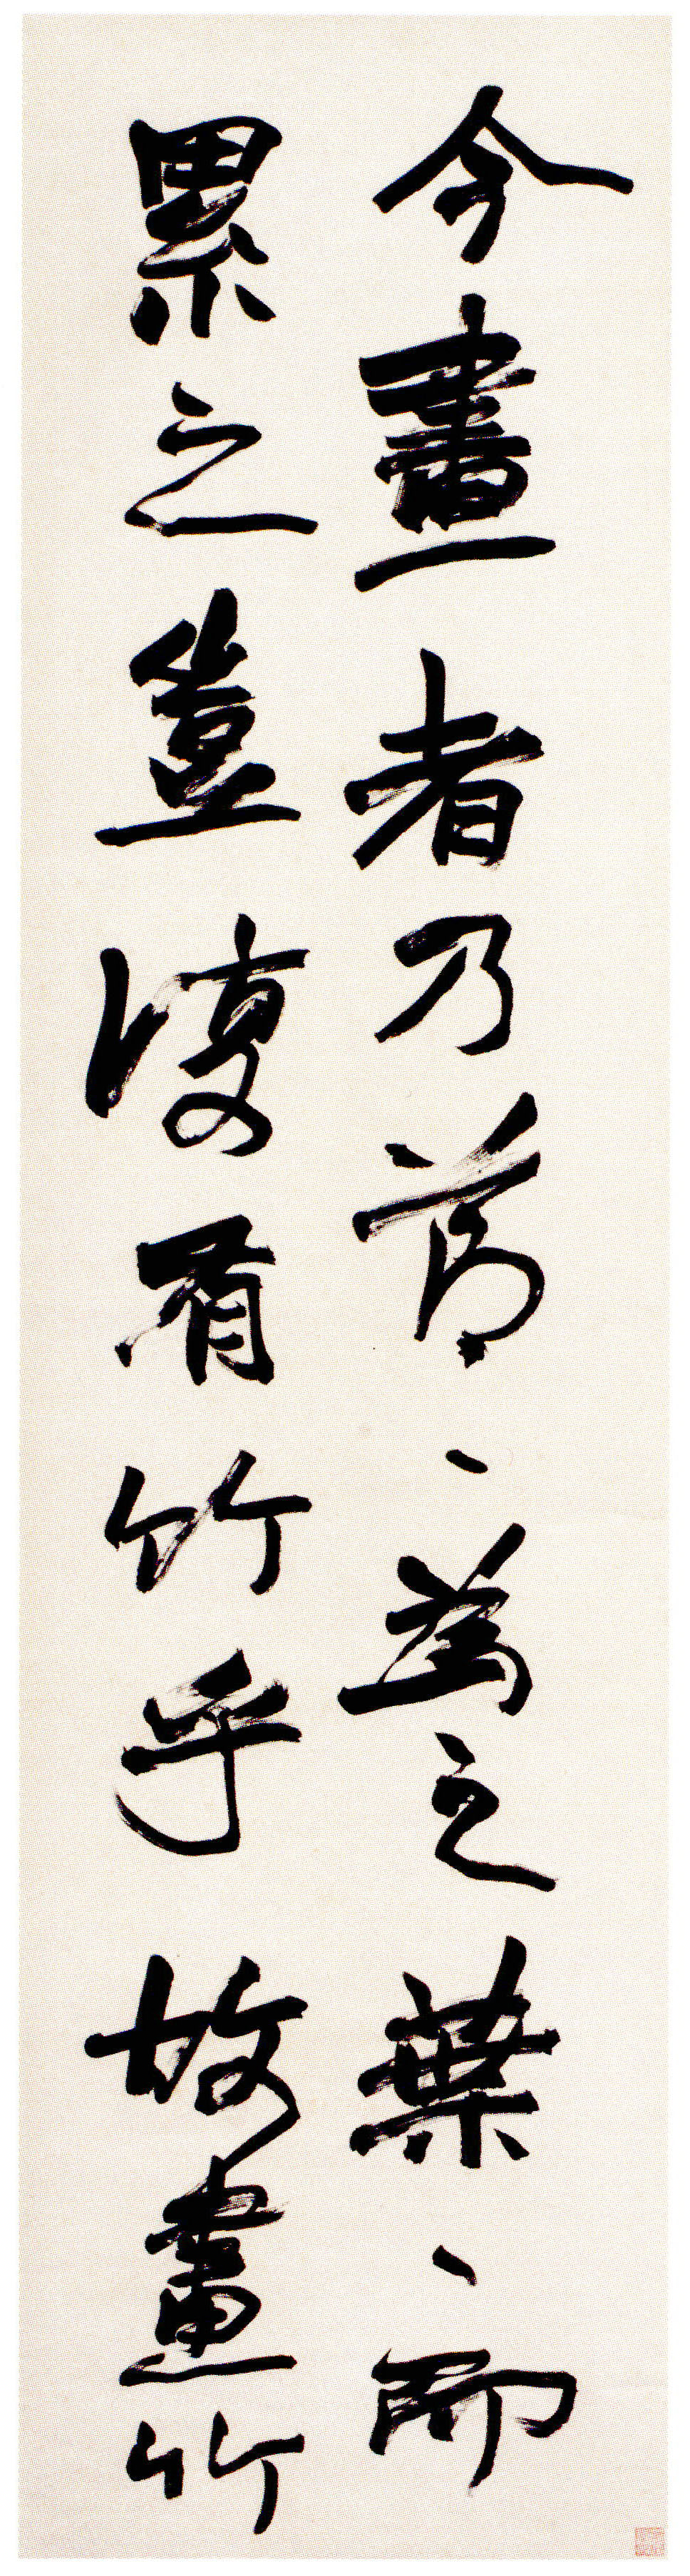 今畫者乃節、為之葉、而
累之豈復有竹乎故畫竹